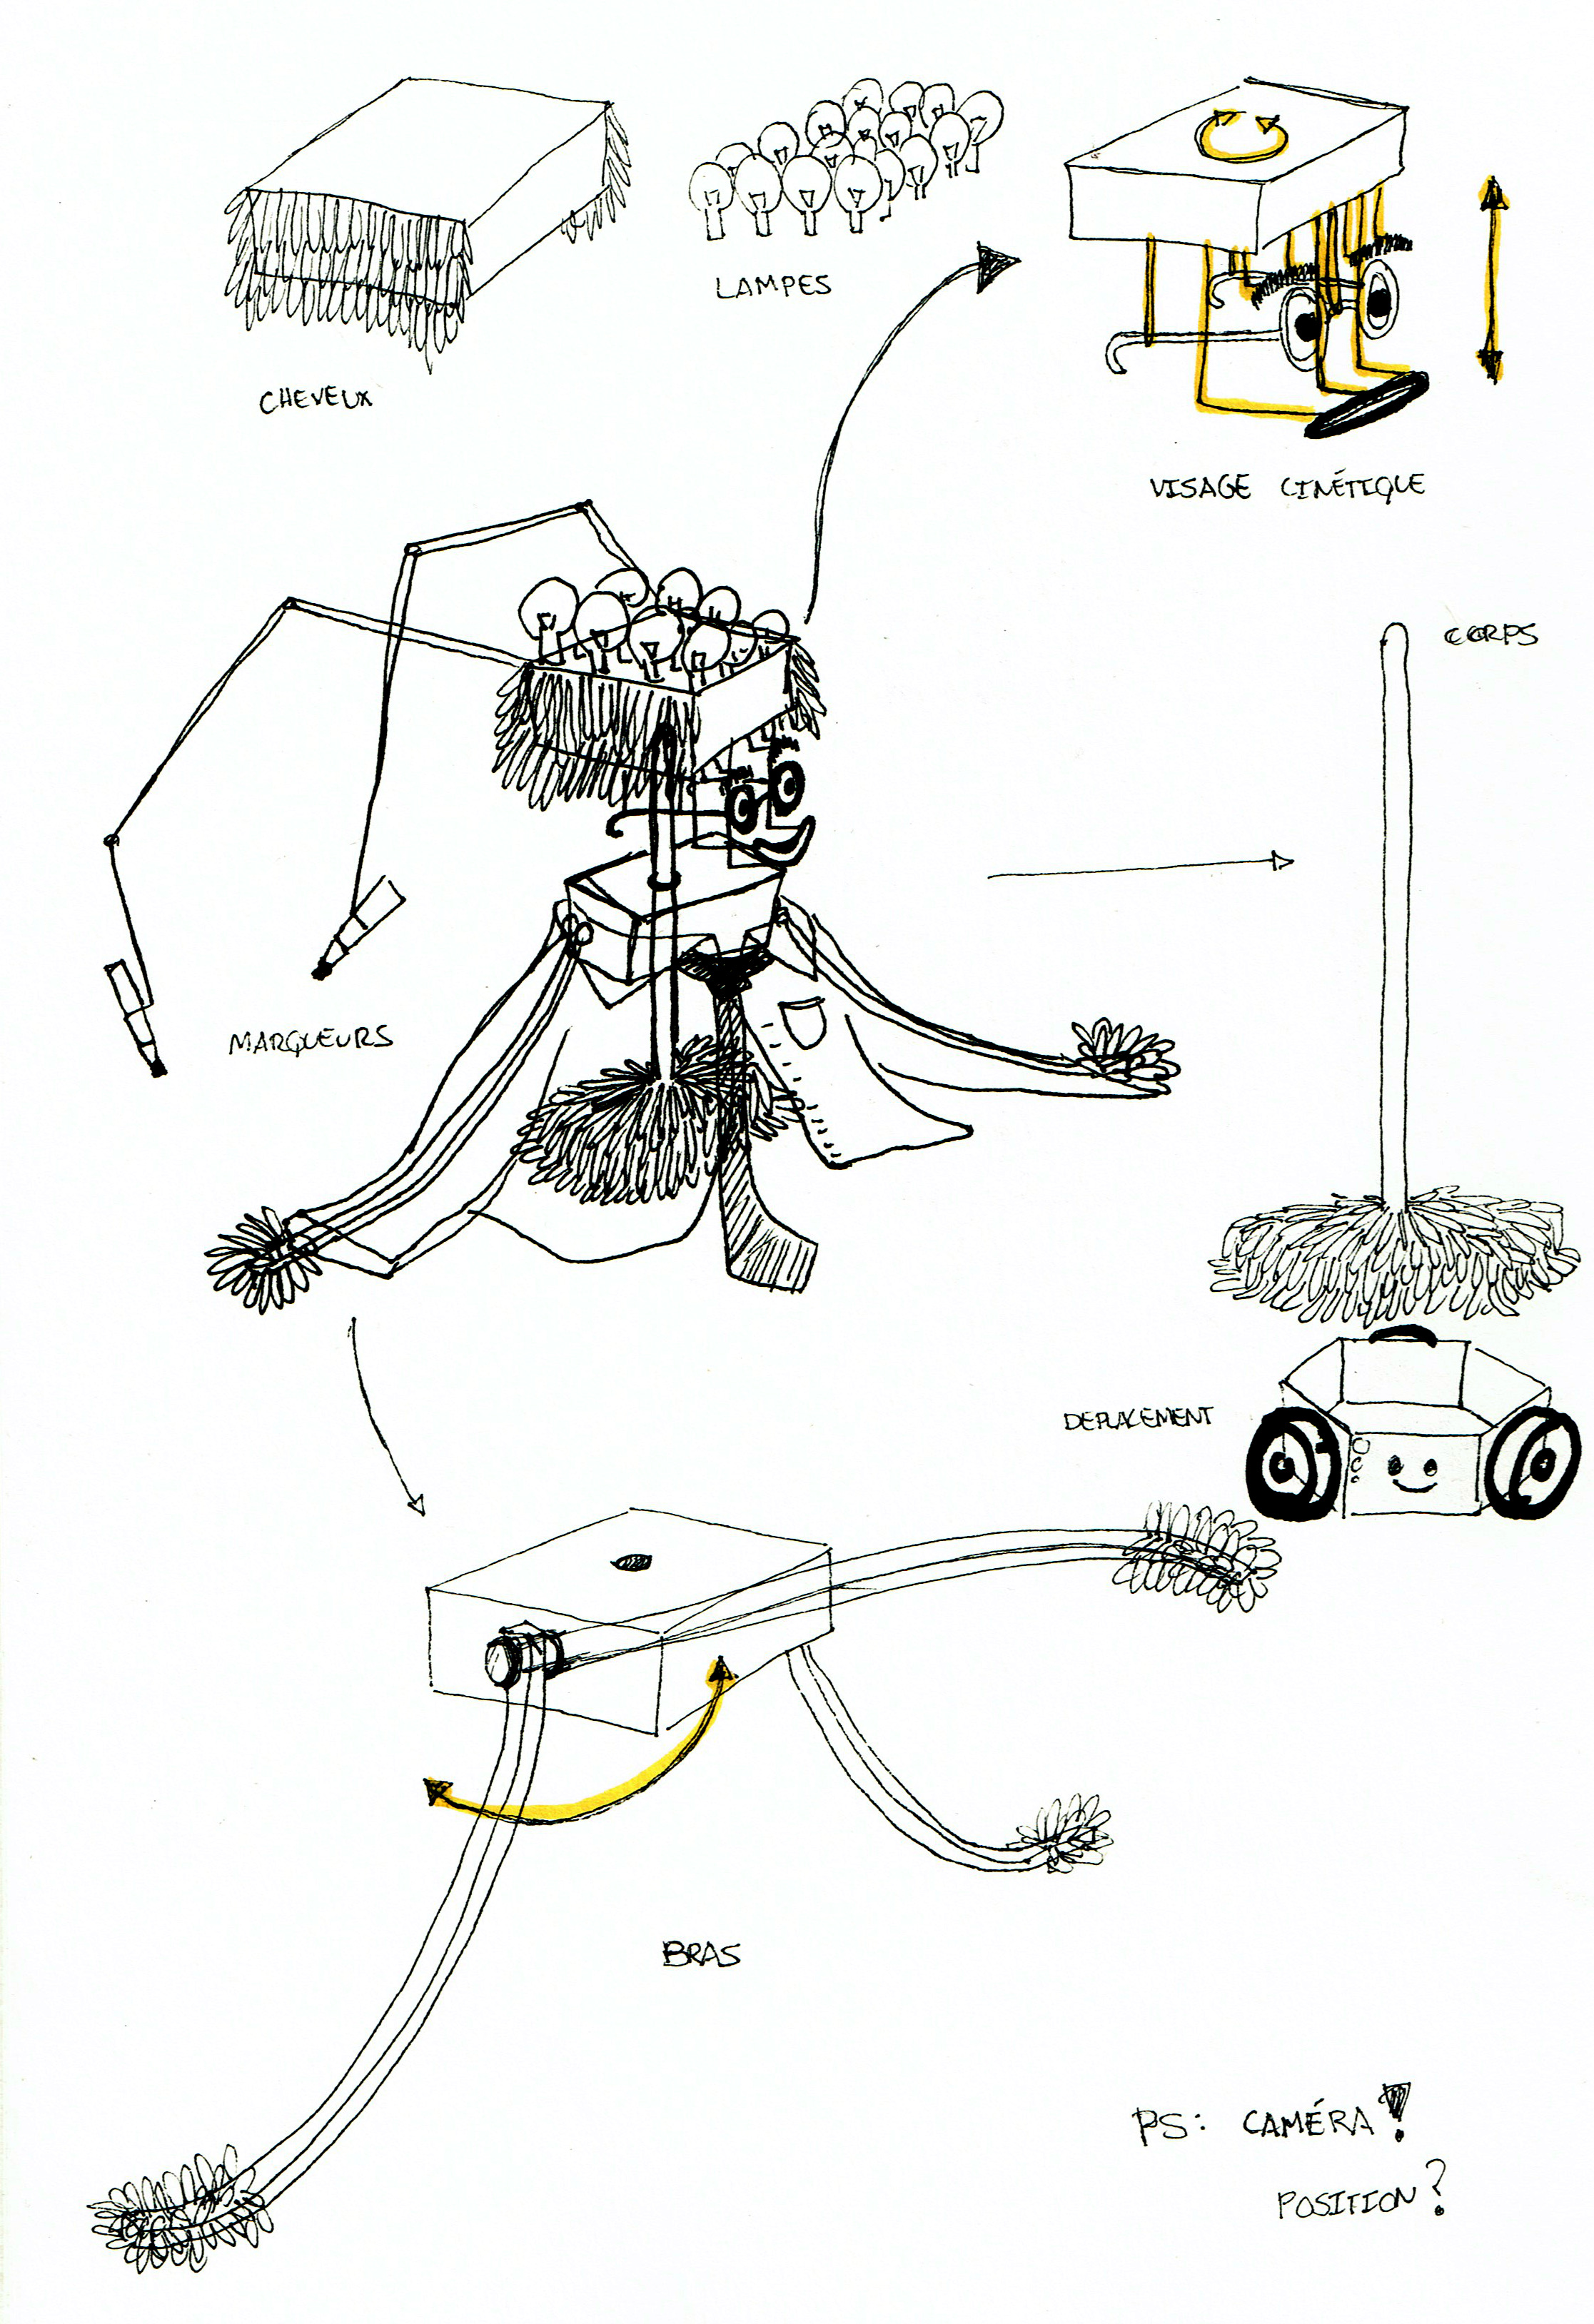 LAMPES
CHEVEUX
VISAGE CINÉTIQUE
CORPS
MARQUEURS
DEPLACEMENT
BRAS
PS: CAMÉRA!
POSITION?